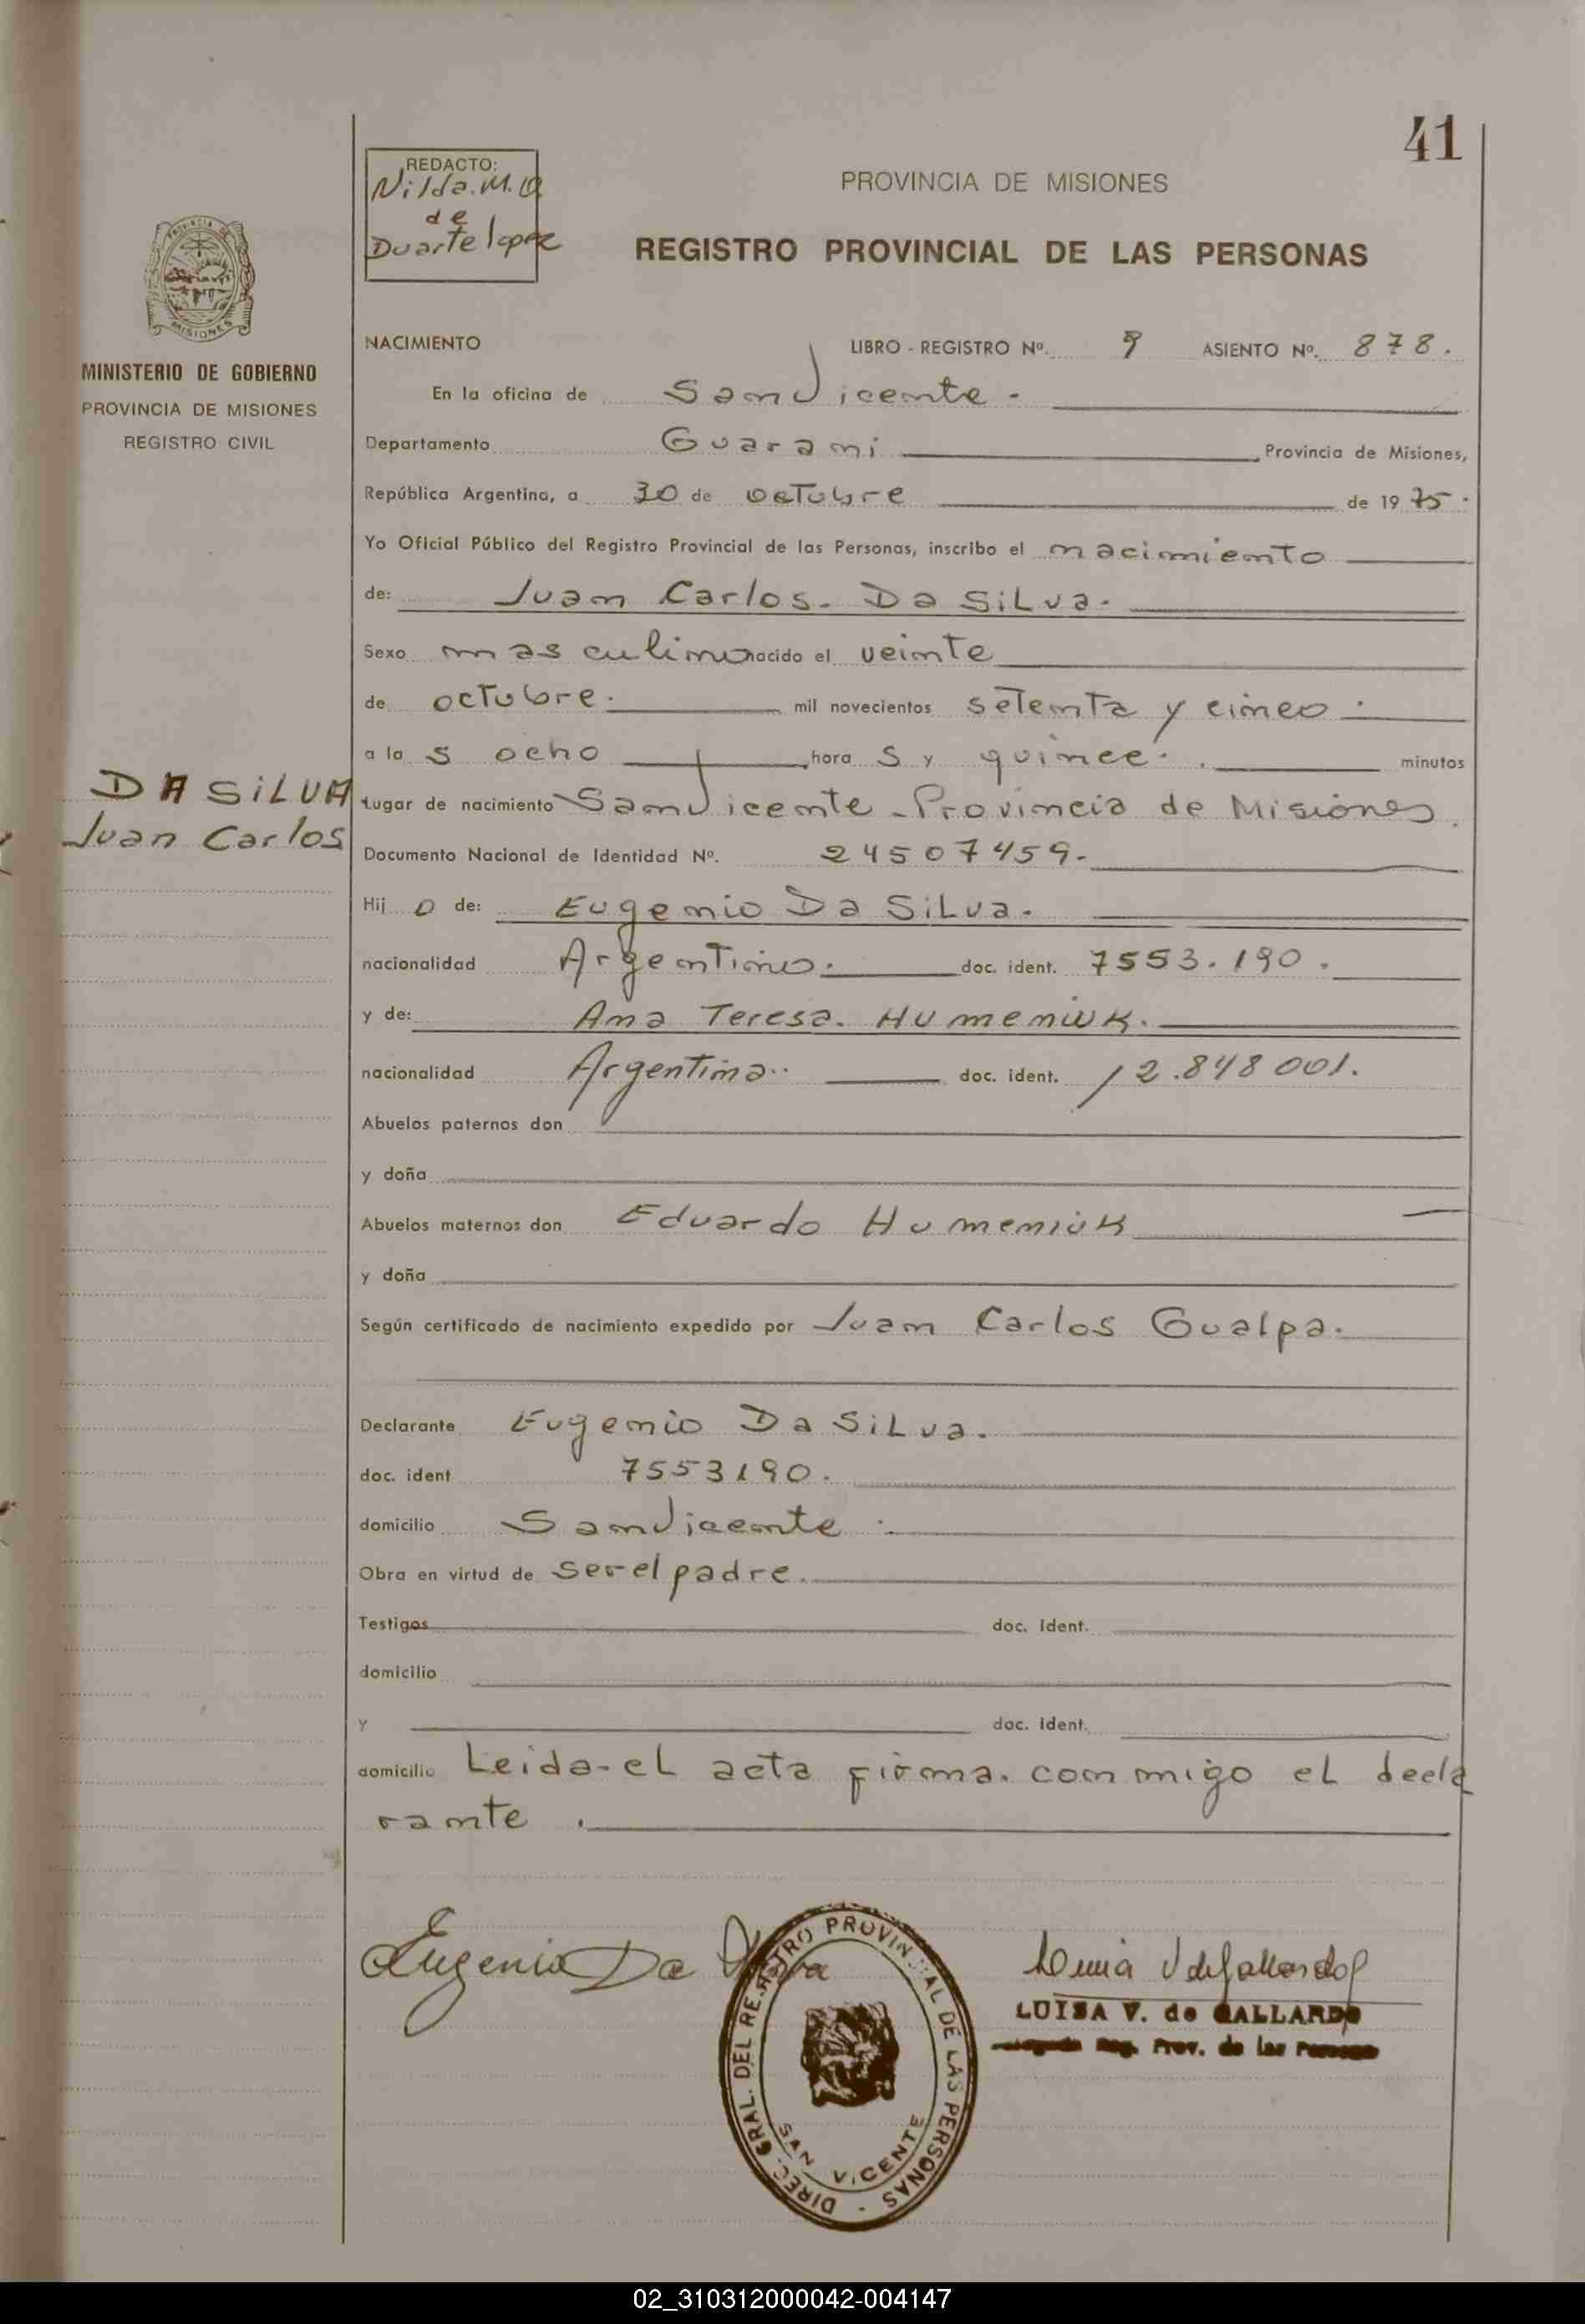 41
REDACTO:
Nilda. M. Q
de
Duarte lopez
PROVINCIA DE MISIONES
REGISTRO PROVINCIAL DE LAS PERSONAS
PROVINCIA DE
MISIONES
MINISTERIO DE GOBIERNO
PROVINCIA DE MISIONES
REGISTRO CIVIL
NACIMIENTO LIBRO - REGISTRO Nº. 9 ASIENTO Nº. 878.
En la oficina de San Vicente.
Departamento Guarani Provincia de Misiones,
República Argentina, a 30 de octubre de 1975.
Yo Oficial Público del Registro Provincial de las Personas, inscribo el nacimiento
de: Juan Carlos. Da Silva.
Sexo masculino nacido el veinte
de octubre. mil novecientos setenta y cinco.
a las ocho horas y quince. minutos
DA SILVA
Juan Carlos
Lugar de nacimiento San Vicente - Provincia de Misiones.
Documento Nacional de Identidad Nº. 24507459.
Hijo de: Eugenio Da Silva.
nacionalidad Argentino. doc. ident. 7553.190.
y de: Ana Teresa. Humeniuk.
nacionalidad Argentina.. doc. ident. 12.848001.
Abuelos paternos don
y doña
Abuelos maternos don Eduardo Humeniuk
y doña
Según certificado de nacimiento expedido por Juan Carlos Gualpa.
Declarante Eugenio Da Silva.
doc. ident 7553190.
domicilio San Vicente.
Obra en virtud de ser el padre.
Testigos doc. ident.
domicilio
y doc. ident.
domicilio Leida-el acta firma. conmigo el decla
rante.
Eugenio Da Silva
DIREC. GRAL. DEL REGISTRO PROVINCIAL DE LAS PERSONAS -
SAN VICENTE
LUISA V. de GALLARDO
Reg. Prov. de las Personas
02_310312000042-004147